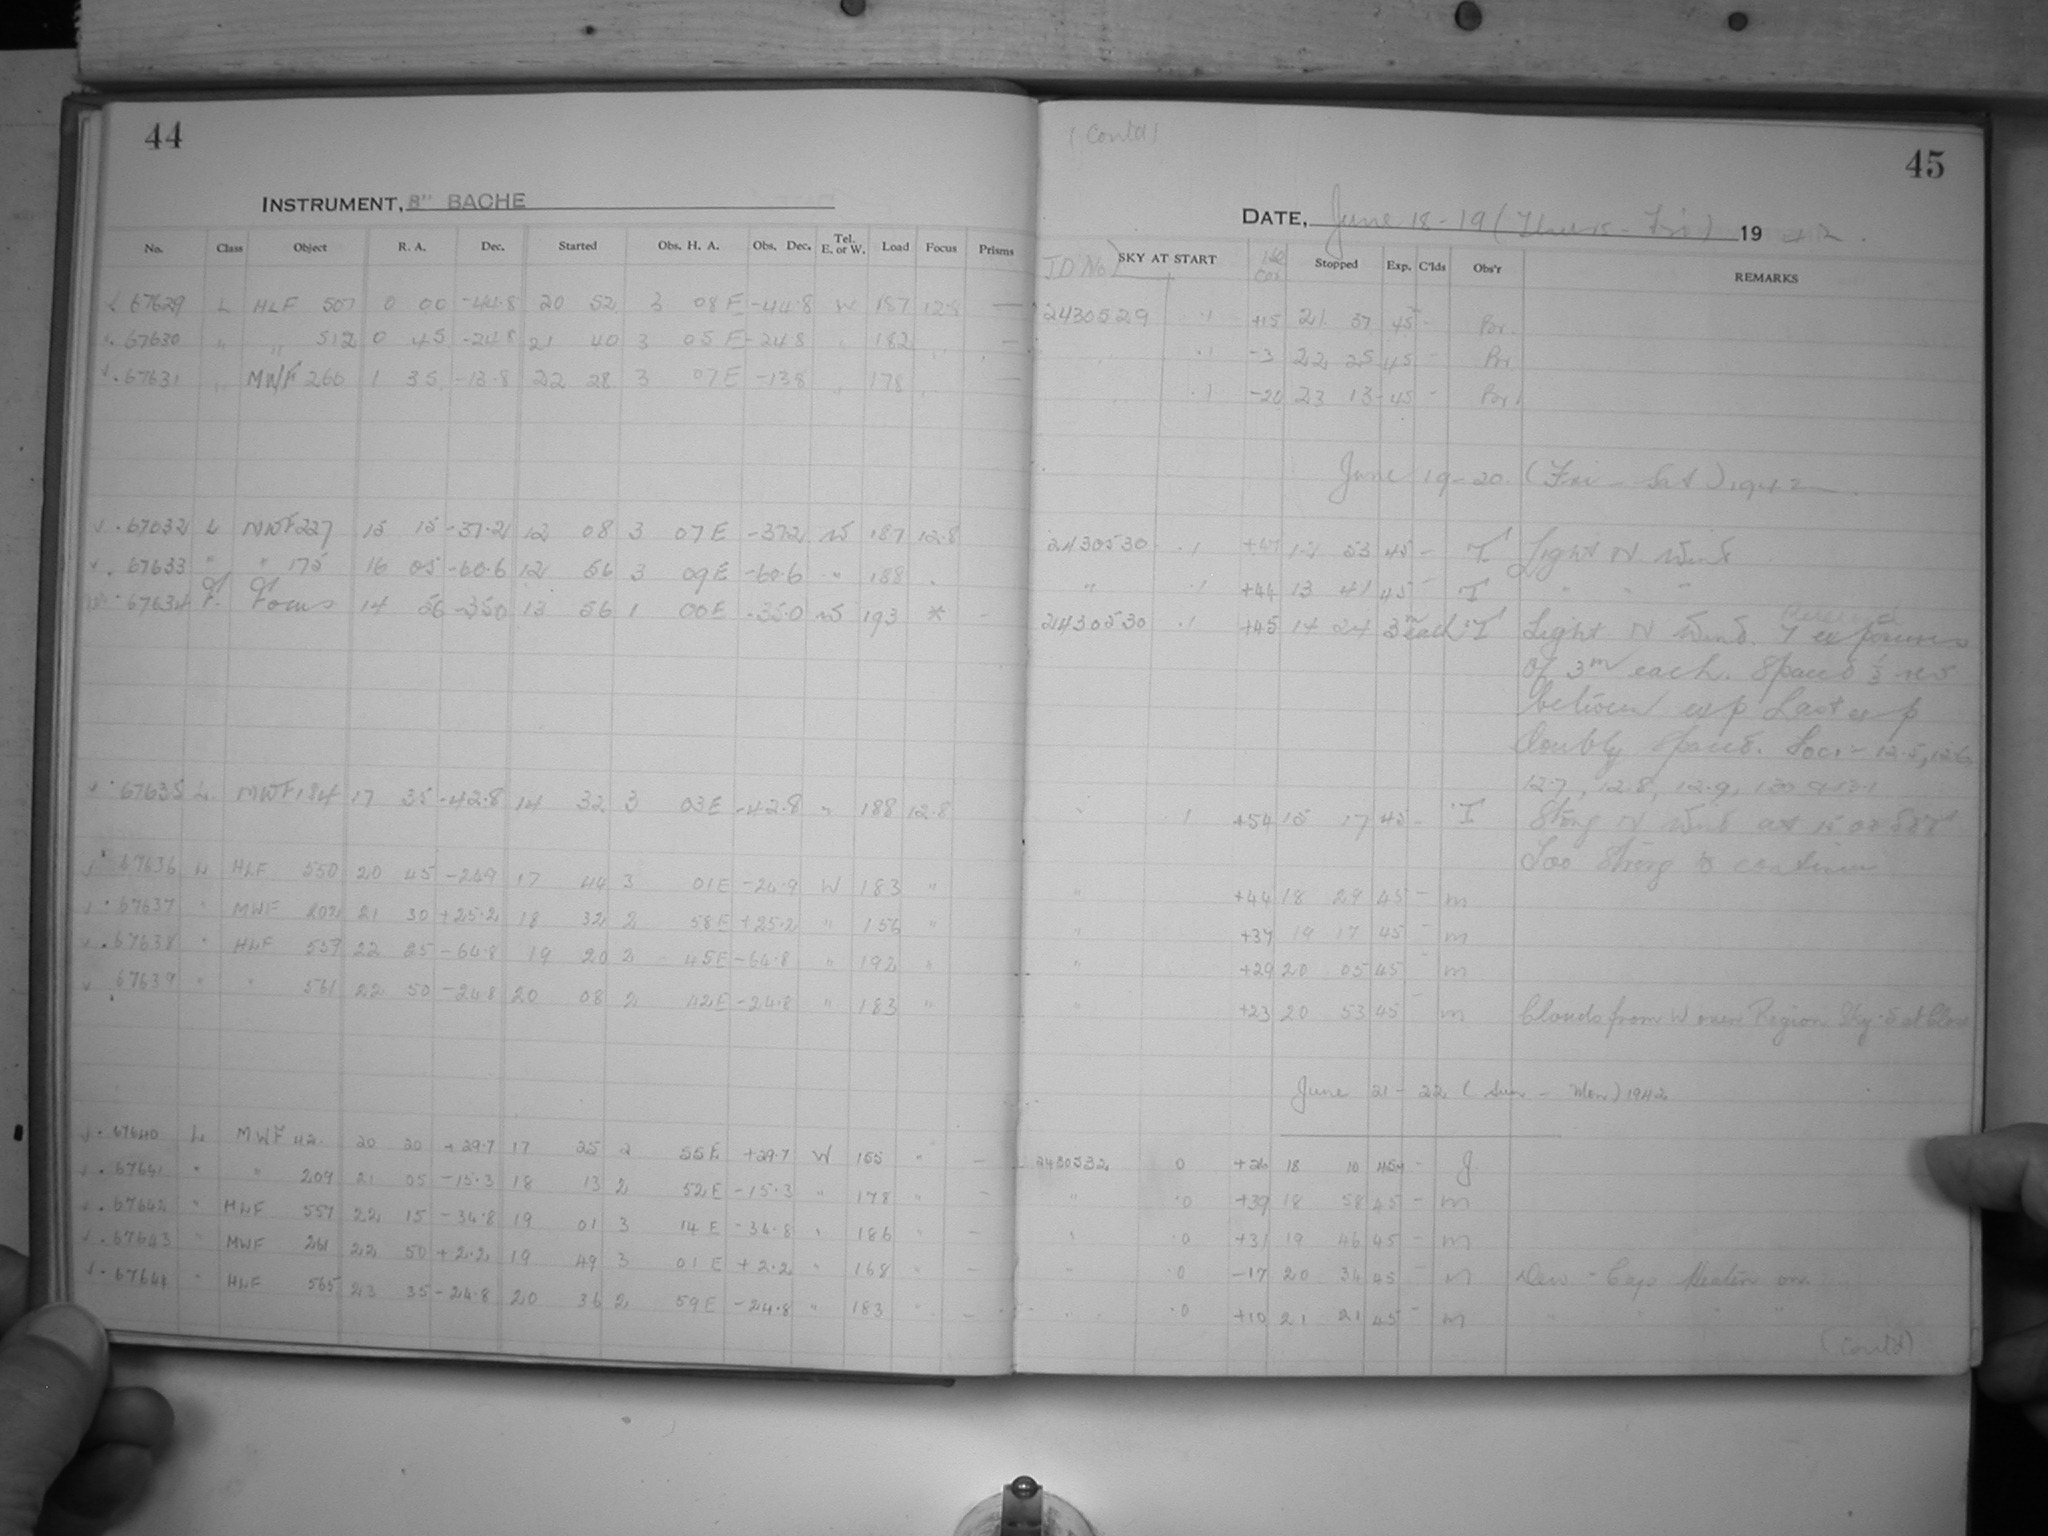 44
INSTRUMENT, 8" BACHE
No. Class Object R. A. Dec. Started Obs. H. A. Obs. Dec. Tel. E. or W. Load Focus Prisms
67629 L HLF 507 0 00 -44.8 20 52 3 08 E -44.8 W 187 12.8 —
67630 " " 512 0 45 -24.8 21 40 3 05 E -24.8 " 182 " —
67631 " MWF 260 1 35 -13.8 22 28 3 07 E -13.8 " 178 " —
67632 L MWF 227 15 15 -37.2 12 08 3 07 E -37.2 W 187 12.8
67633 " " 175 16 05 -60.6 12 56 3 09 E -60.6 " 188 "
67634 F. Focus 14 56 -35.0 13 56 1 00 E -35.0 W 193 * –
67635 L. MWF 184 17 35 -42.8 14 32 3 03 E -42.8 " 188 12.8
67636 L HLF 550 20 45 -24.9 17 44 3 01 E -24.9 W 183 "
67637 " MWF 202 21 30 +25.2 18 32 2 58 E +25.2 " 156 "
67638 " HLF 559 22 25 -64.8 19 20 2 45 E -64.8 " 192 "
67639 " " 561 22 50 -24.8 20 08 2 42 E -24.8 " 183 "
67640 L MWF 112 20 20 +29.7 17 25 2 55 E +29.7 W 155 " –
67641 " " 209 21 05 -15.3 18 13 2 52 E -15.3 " 178 " –
67642 " HLF 557 22 15 -34.8 19 01 3 14 E -34.8 " 186 " –
67643 " MWF 261 22 50 +2.2 19 49 3 01 E +2.2 " 168 " –
67644 " HLF 565 23 35 -24.8 20 36 2 59 E -24.8 " 183 " –
(Contd)
45
DATE, June 18-19 (Thurs - Fri) 19 42.
JD No SKY AT START Stopped Exp. C'lds Obs'r REMARKS
2430529 .1 +15 21 37 45 – Par.
" .1 -3 22 25 45 – Par
" .1 -20 23 13 45 – Par.
June 19-20. (Fri - Sat) 1942
2430530 .1 +47 12 53 45 – T Light N Wind
" .1 +44 13 41 45 – T " " "
2430530 .1 +45 14 24 3m each T Light N Wind. 7 exposures
of 3m each. Spaced 1/3 rev
between exp Last exp
doubly spaced. Foci - 12.5, 12.6
12.7, 12.8, 12.9, 13.0 & 13.1
" .1 +54 15 17 45 – T Strong N Wind at
Too strong to continue
" +44 18 29 45 – m
" +37 19 17 45 m
" +29 20 05 45 – m
" +23 20 53 45 – m Clouds from W over Region Sky .5 at Close
June 21 - 22 (Sun - Mon) 1942
2430532 0 +26 18 10 45m – J
" .0 +39 18 58 45 – m
" .0 +31 19 46 45 – m
" .0 -17 20 34 45 – m Dew - Cap Heater on.
" .0 +10 21 21 45 – m " " "
(Contd)